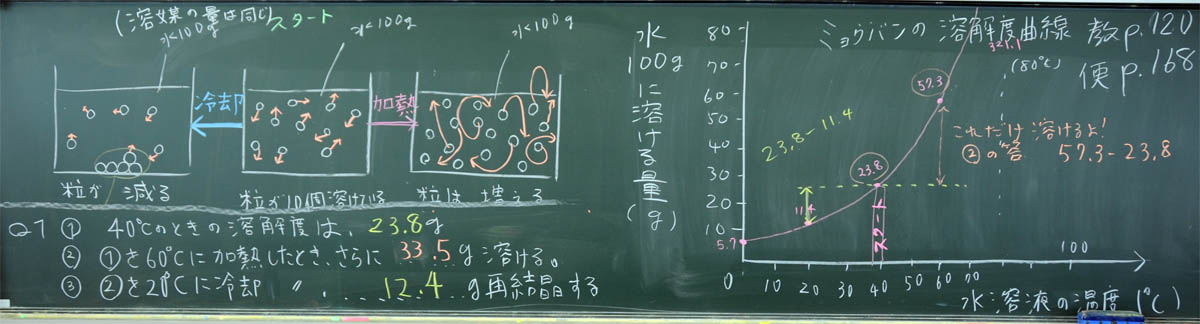 (溶媒の量は同じ)
スタート
水100g
水100g
水100g
冷却
加熱
粒が減る
粒が10個溶けている
粒は増える
Q1 ① 40℃のときの溶解度は、23.8g
② ①を60℃に加熱したとき、さらに33.5g溶ける。
③ ②を20℃に冷却 〃 、… 12.4 g再結晶する
水100gに溶ける量(g)
ミョウバンの溶解度曲線 教p.120
便p.168
321.1
(80℃)
80
70
60
50
40
30
20
10
0
5.7
11.4
23.8
57.3
23.8-11.4
これだけ溶けるよ!
②の答 57.3-23.8
スタート
10 20 30 40 50 60 70 100
水溶液の温度(℃)